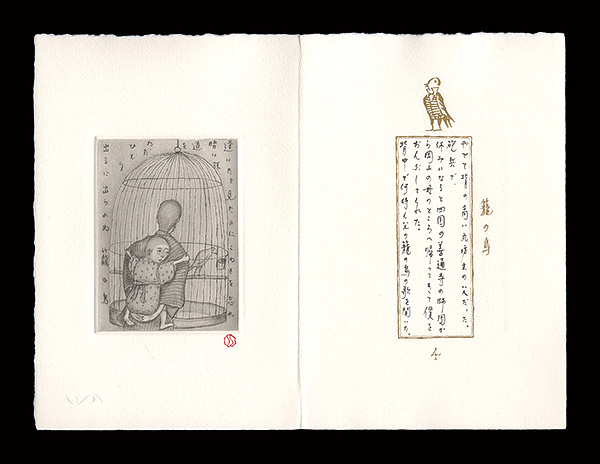 籠の鳥
やせて背の高い丸坊主の父だった。
砲兵で、
休みになると四国の善通寺の師団か
ら岡山の母のところへ帰ってきて僕を
おんぶしてくれた。
背中で何時も父の籠の鳥の歌を聞いた。
4
逢いたさ見たさにこわさを忘れ
暗い夜
道を
ただ
ひとり
出るに出られぬ 籠の鳥